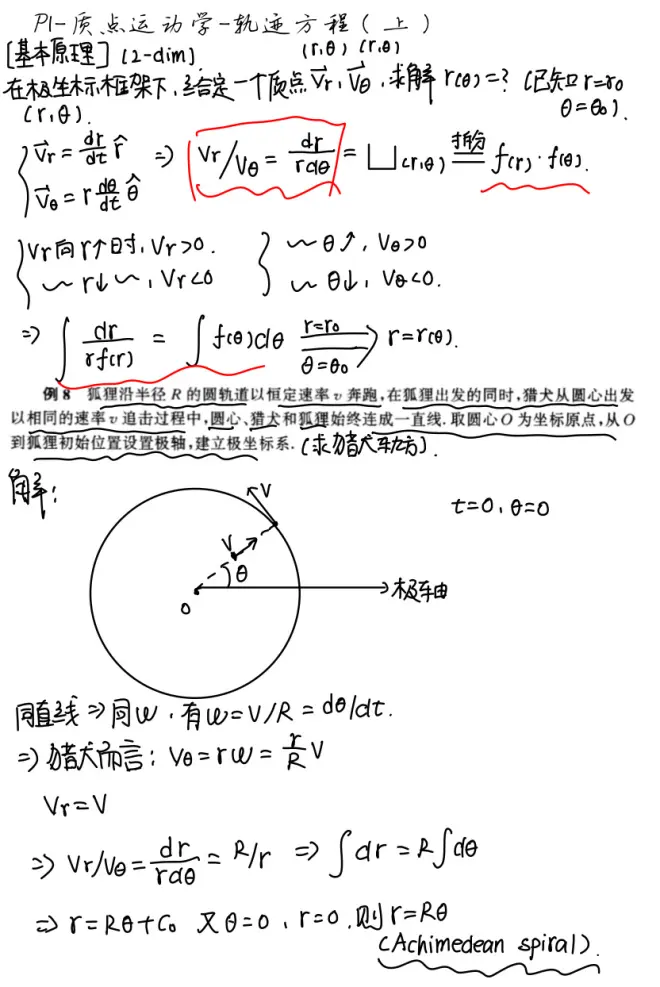 P1-质点运动学-轨迹方程(上)
[基本原理] (2-dim). (r,θ) (r,θ)
在极坐标框架下,给定一个质点 V⃗r, V⃗θ, 求解 r(θ)=? (已知 r=r₀
(r,θ). θ=θ₀).
{ V⃗r = dr/dt r̂ ⇒ Vr/Vθ = dr/rdθ = ⊔(r,θ) 拆分 f(r)·f(θ).
V⃗θ = r dθ/dt θ̂
{ Vr向r↑时, Vr>0. { ~ θ↑, Vθ>0
~ r↓ ~, Vr<0 ~ θ↓, Vθ<0.
⇒ ∫ dr/rf(r) = ∫ f(θ)dθ r=r₀ θ=θ₀ r=r(θ).
例 8 狐狸沿半径 R 的圆轨道以恒定速率 v 奔跑,在狐狸出发的同时,猎犬从圆心出发
以相同的速率 v 追击过程中,圆心、猎犬和狐狸始终连成一直线.取圆心 O 为坐标原点,从 O
到狐狸初始位置设置极轴,建立极坐标系. (求猎犬轨方).
解:
V
t=0, θ=0
V
θ
O
极轴
同直线⇒同ω, 有ω=V/R=dθ/dt.
⇒猎犬而言: Vθ=rω= r/R V
Vr=V
⇒ Vr/Vθ = dr/rdθ = R/r ⇒ ∫dr=R∫dθ
⇒ r=Rθ+C₀ 又θ=0, r=0, 则 r=Rθ
(Achimedean spiral).